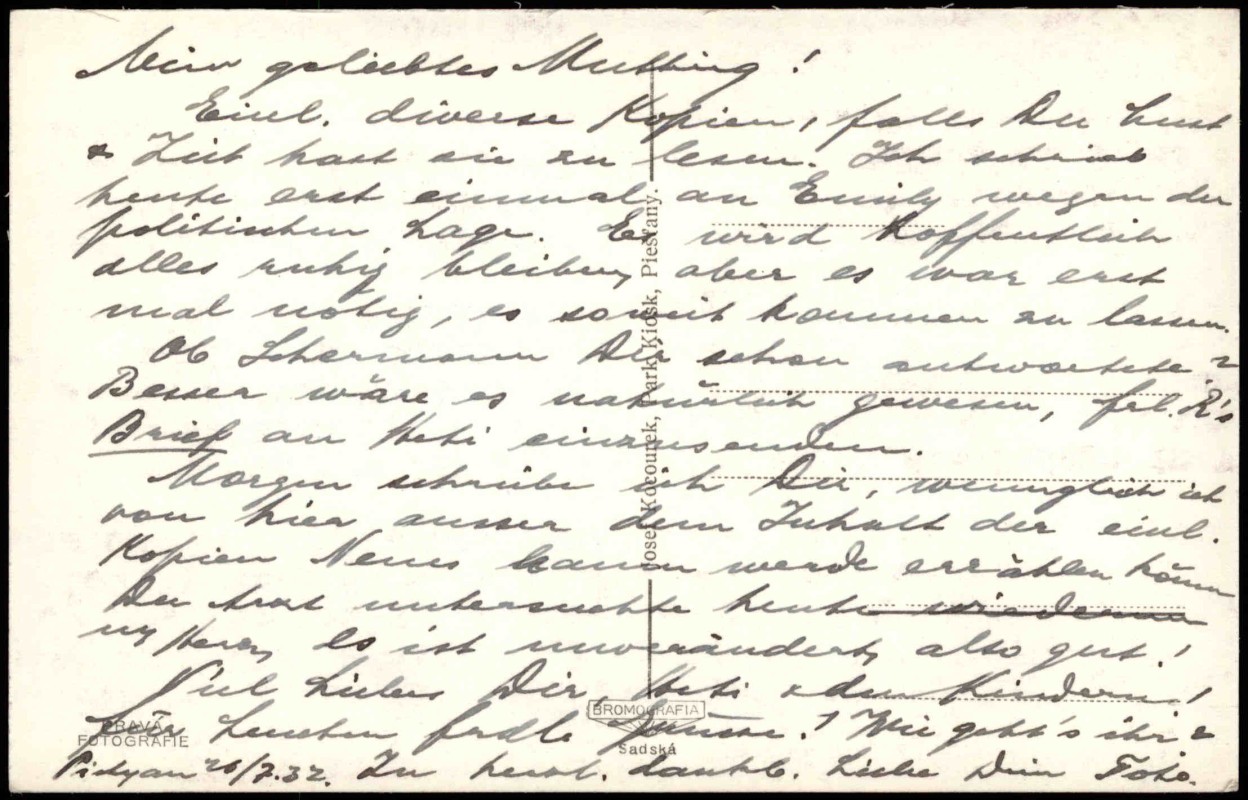 Mein geliebtes Mutting!
Einl. diverse Kopien, falls Du Lust
& Zeit hast sie zu lesen. Ich schrieb
heute erst einmal an Emily wegen der
politischen Lage. Es wird hoffentlich
alles ruhig bleiben, aber es war erst
mal nötig, es soweit kommen zu lassen.
Ob Schermann Dir schon antwortete?
Besser wäre es natürlich gewesen, frl. R's
Brief an Heti einzusenden.
Morgen schreibe ich Dir, wenngleich ich
von hier ausser dem Inhalt der einl.
Kopien Neues kaum werde erzählen können
Der Arzt untersuchte heute wiederum
my Herz, es ist unverändert, also gut!
Viel Liebes Dir, Heti & den Kindern!
Für Lenchen frdle Grüsse! Wie geht's ihr?
Pistyan 26/7.32. In herzl. dankb. Liebe Dein Toto.
Josef Kocourek, Park, Kiosk, Piešťany.
PRAVÁ
FOTOGRAFIE
BROMOGRAFIA
Sadská